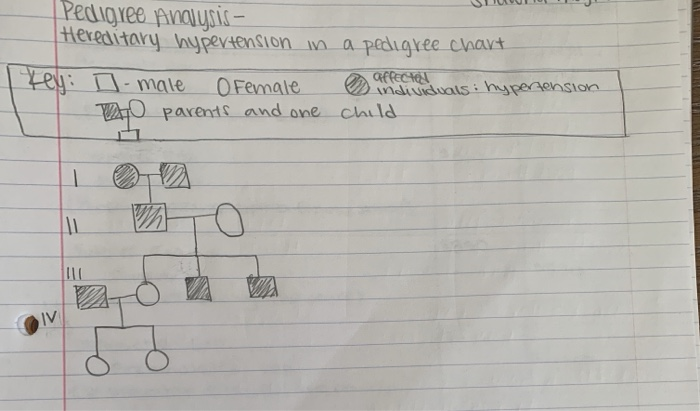 Pedigree Analysis-
Hereditary hypertension in a pedigree chart
Key: □ - male O Female affected individuals: hypertension
parents and one child
I
II
III
IV